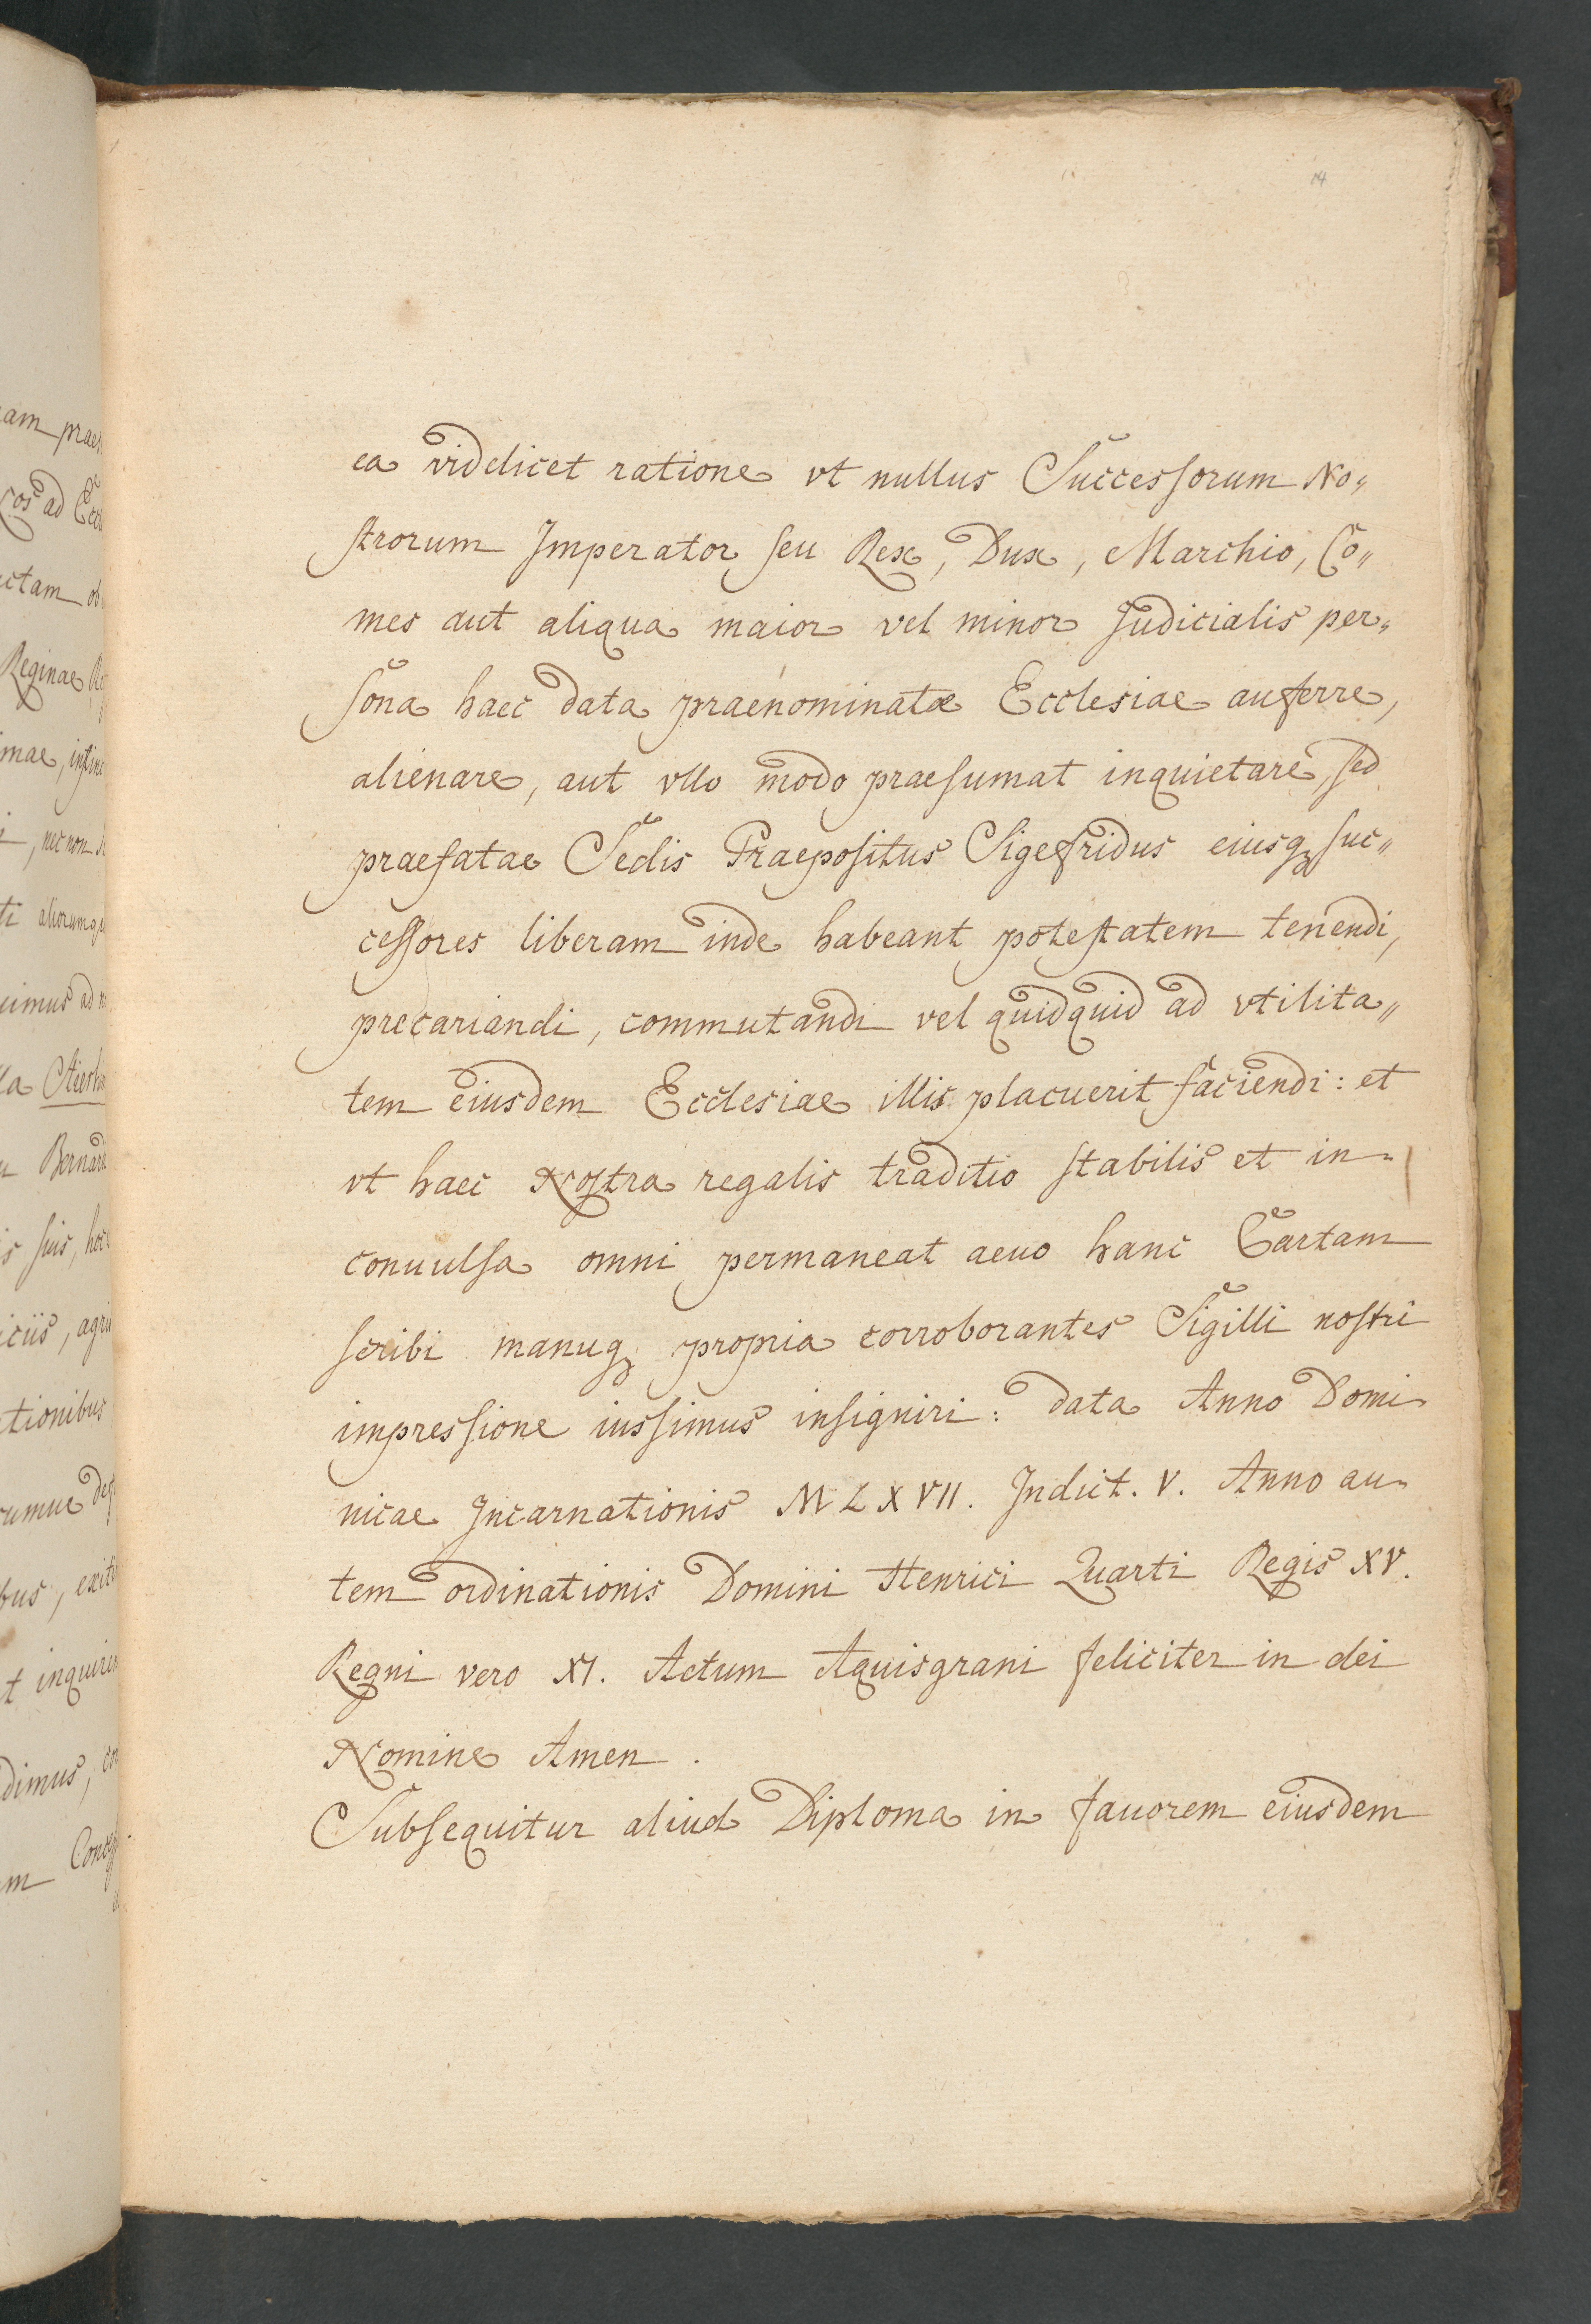 14
ea videlicet ratione vt nullus Successorum No„
strorum Imperator seu Rex, Dux, Marchio, Co„
mes aut aliqua maior vel minor Judicialis per„
sona haec data praenominatæ Ecclesiae auferre,
alienare, aut vllo modo praesumat inquietare, sed
praefatae Sedis Praepositus Sigefridus eiusq₃ suc„
cessores liberam inde habeant potestatem tenendi,
precariandi, commutandi vel quidquid ad vtilita„
tem eiusdem Ecclesiae illis placuerit faciendi: et
vt haec Nostra regalis traditio stabilis et in-
conuulsa omni permaneat aeuo hanc Cartam
scribi manuq₃ propria corroborantes Sigilli nostri
impressione iussimus insigniri: data Anno Domi-
nicae Incarnationis MLXVII. Indict. V. Anno au-
tem ordinationis Domini Henrici Quarti Regis XV.
Regni vero XI. Actum Aquisgrani feliciter in dei
Nomine Amen.
Subsequitur aliud Diploma in fauorem eiusdem